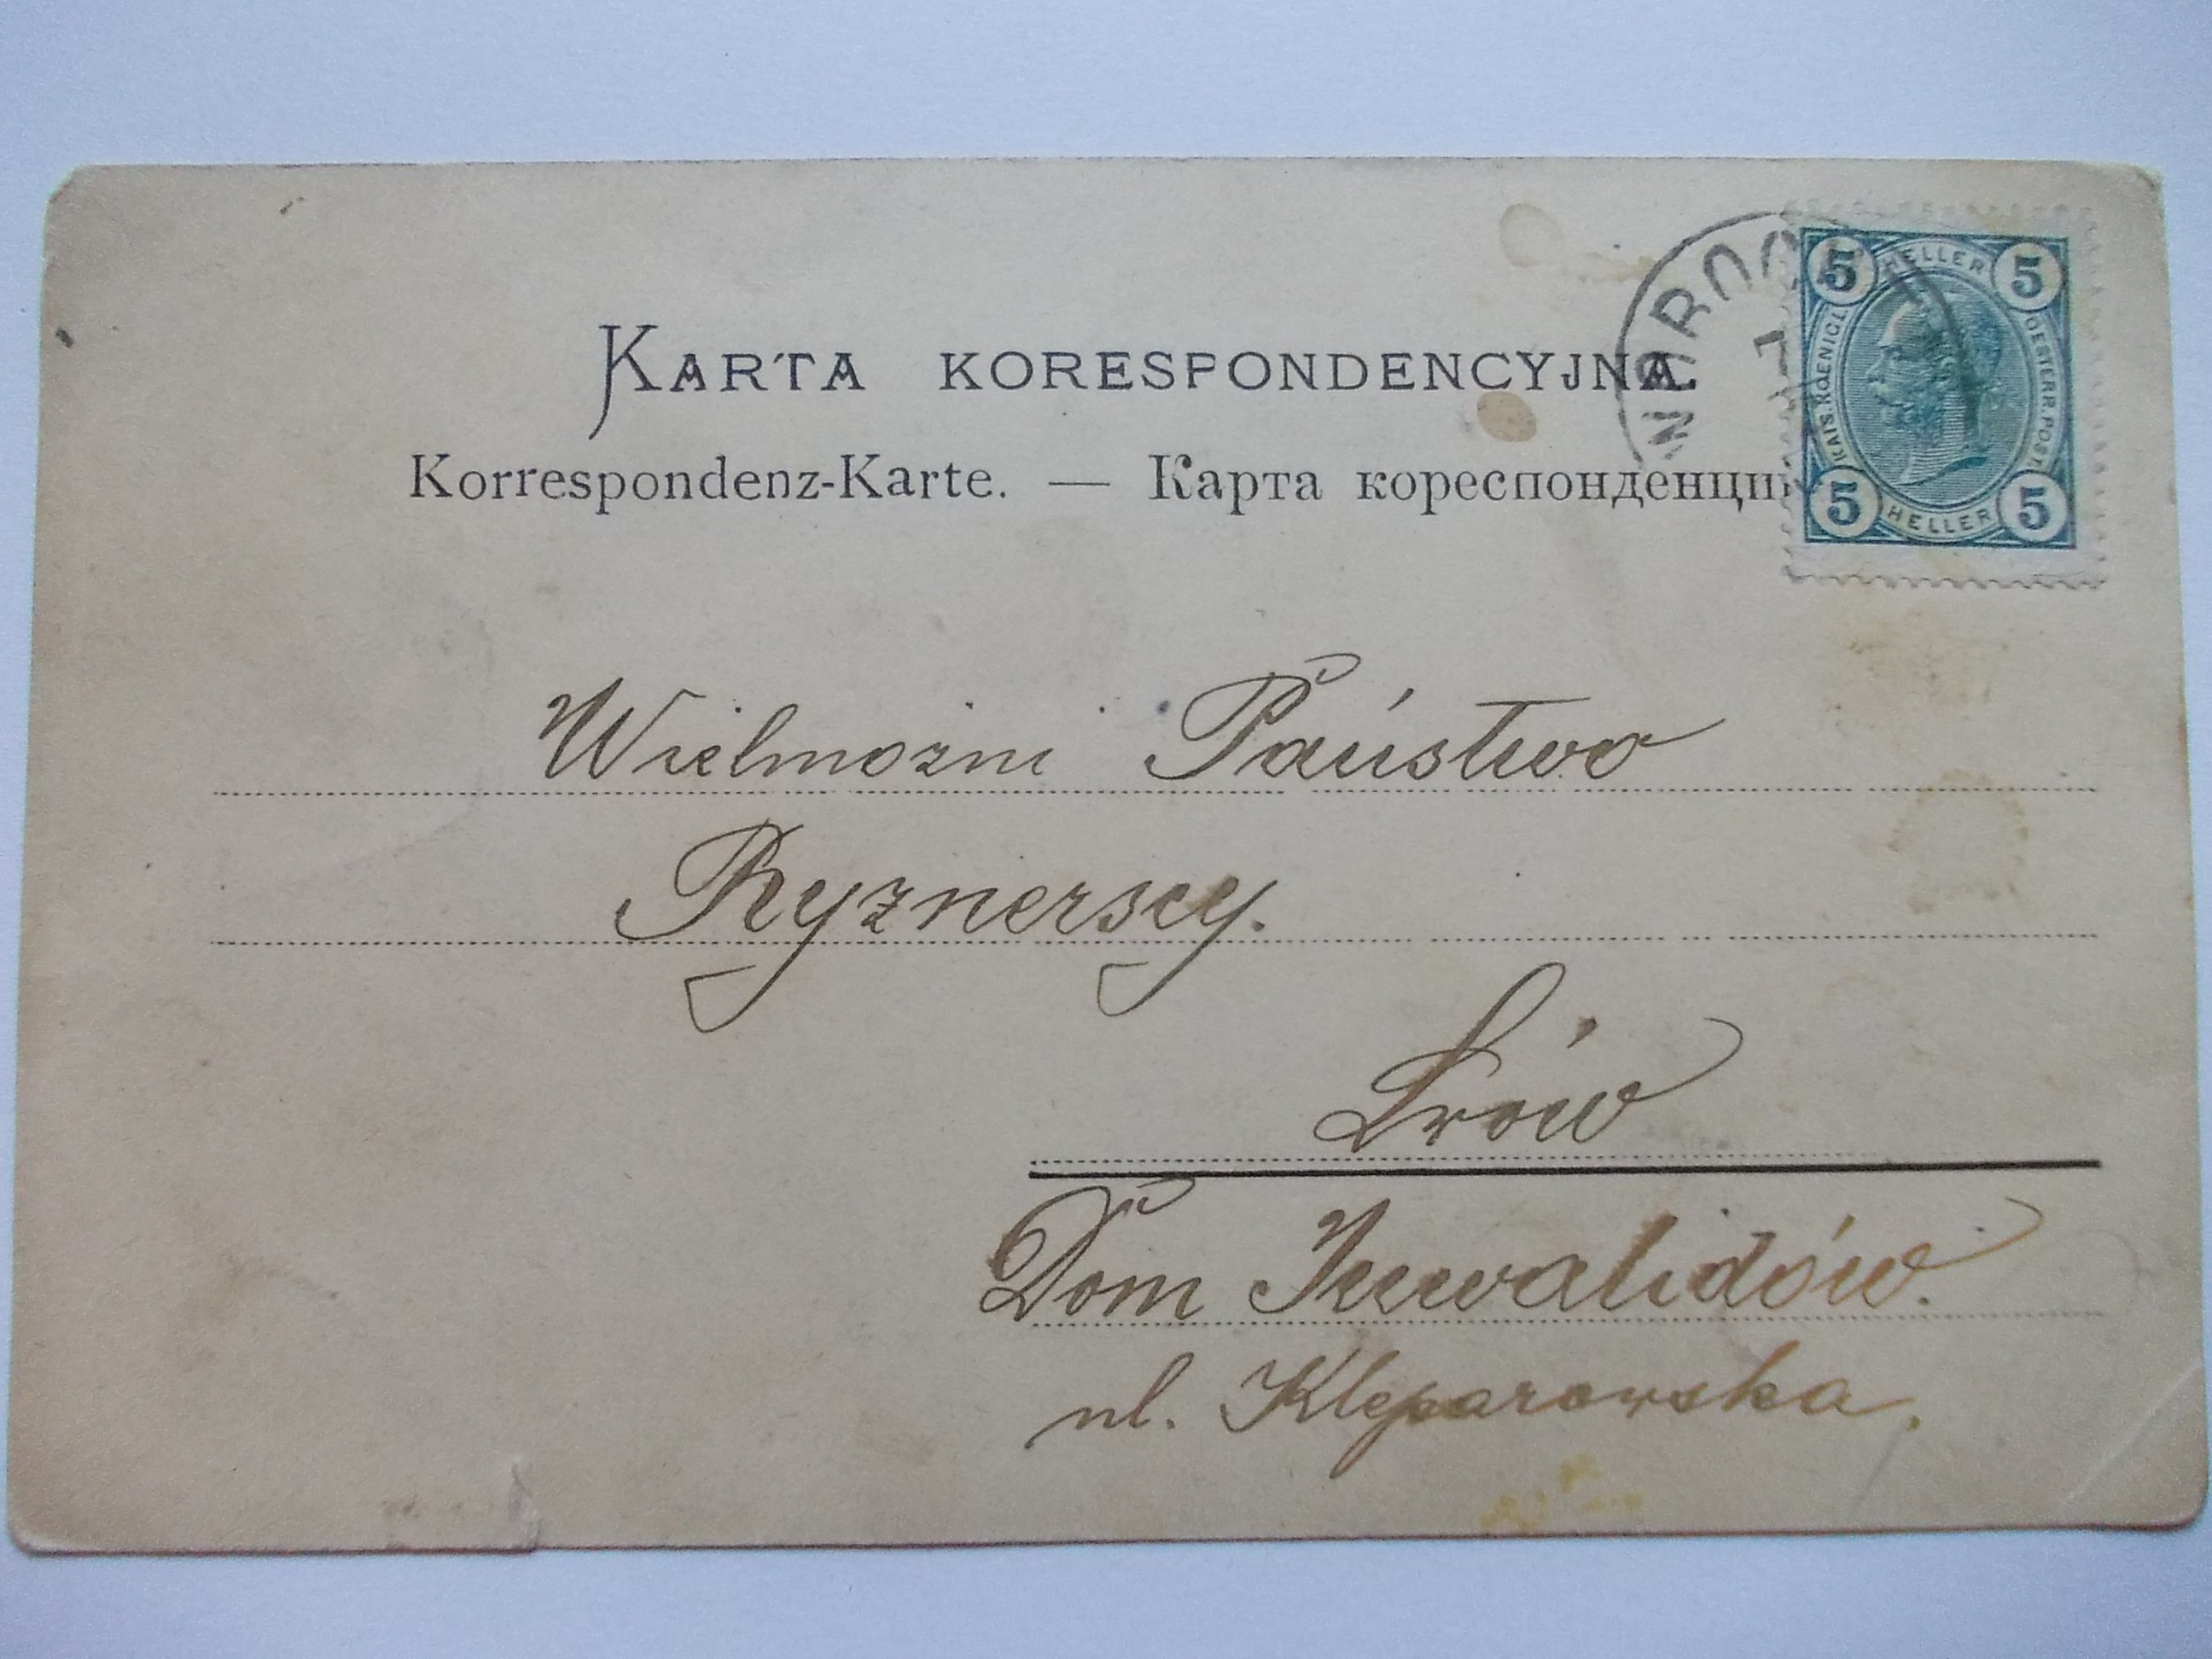 KARTA KORESPONDENCYJNA.
Korrespondenz-Karte. — Карта кореспонденций
5 HELLER 5
KAIS. KOENIGL. OESTERR. POST.
5 HELLER 5
Wielmożni Państwo
Ryznerscy.
Lwów
Dom Inwalidów.
ul. Kleparowska.